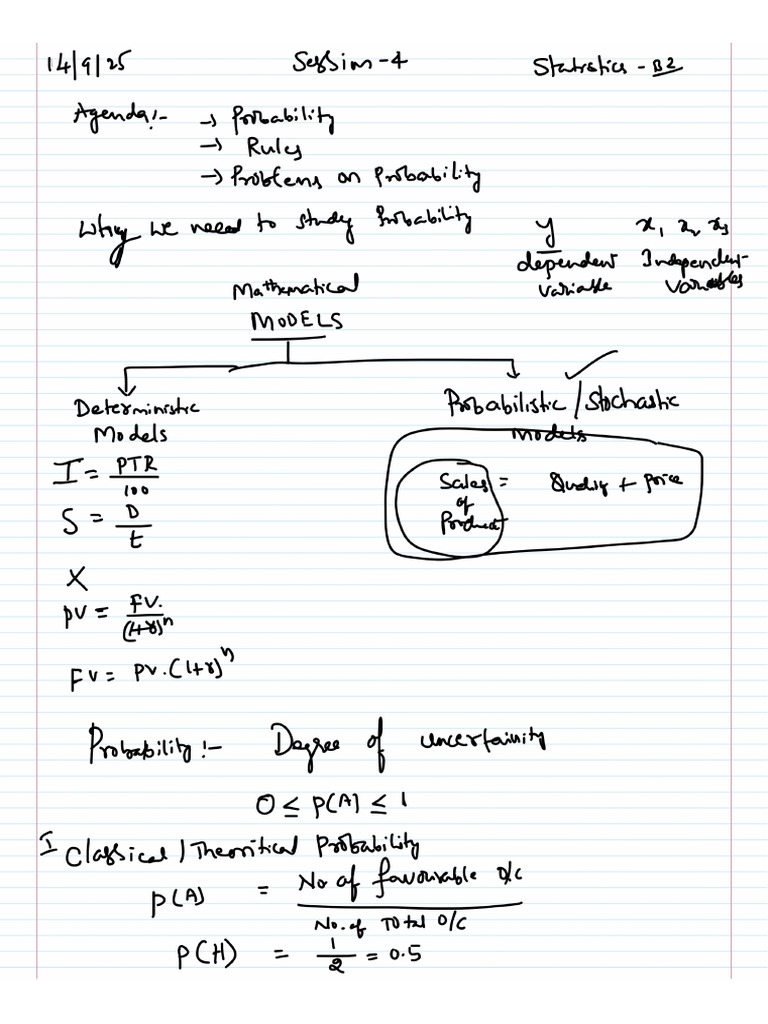 14/9/25 Session-4 Statistics - B2
Agenda:- → Probability
→ Rules
→ Problems on Probability
Why we need to study Probability
y x₁ x₂ x₃
dependent variable
Independent variables
Mathematical
MODELS
Deterministic Models
Probabilistic / Stochastic models
I = PTR/100
Sales of Product = Quality + Price
S = D/t
X
PV = FV./(1+r)ⁿ
FV = PV.(1+r)ⁿ
Probability:- Degree of uncertainity
0 ≤ P(A) ≤ 1
I Classical / Theoritical Probability
P(A) = No of favourable O/C / No. of Total O/C
P(H) = 1/2 = 0.5